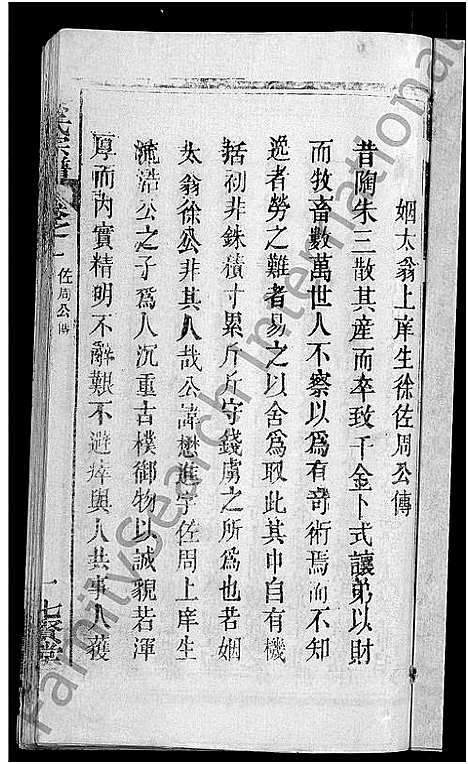 姻太翁上庠生徐佐周公傳
昔陶朱三散其產而卒致千金卜式讓弟以財
而牧畜數萬世人不察以為有奇術焉而不知
逸者勞之難者易之以舍為取此其中自有機
括初非銖積寸累斤斤守錢虜之所為也若姻
太翁徐公非其人哉公諱懋進字佐周上庠生
流浩公之子為人沉重古樸御物以誠貌若渾
厚而內實精明不辭艱不避瘁與人共事人獲
氏宗譜 卷之一 佐周公傳 一 七賢堂
FamilySearch International